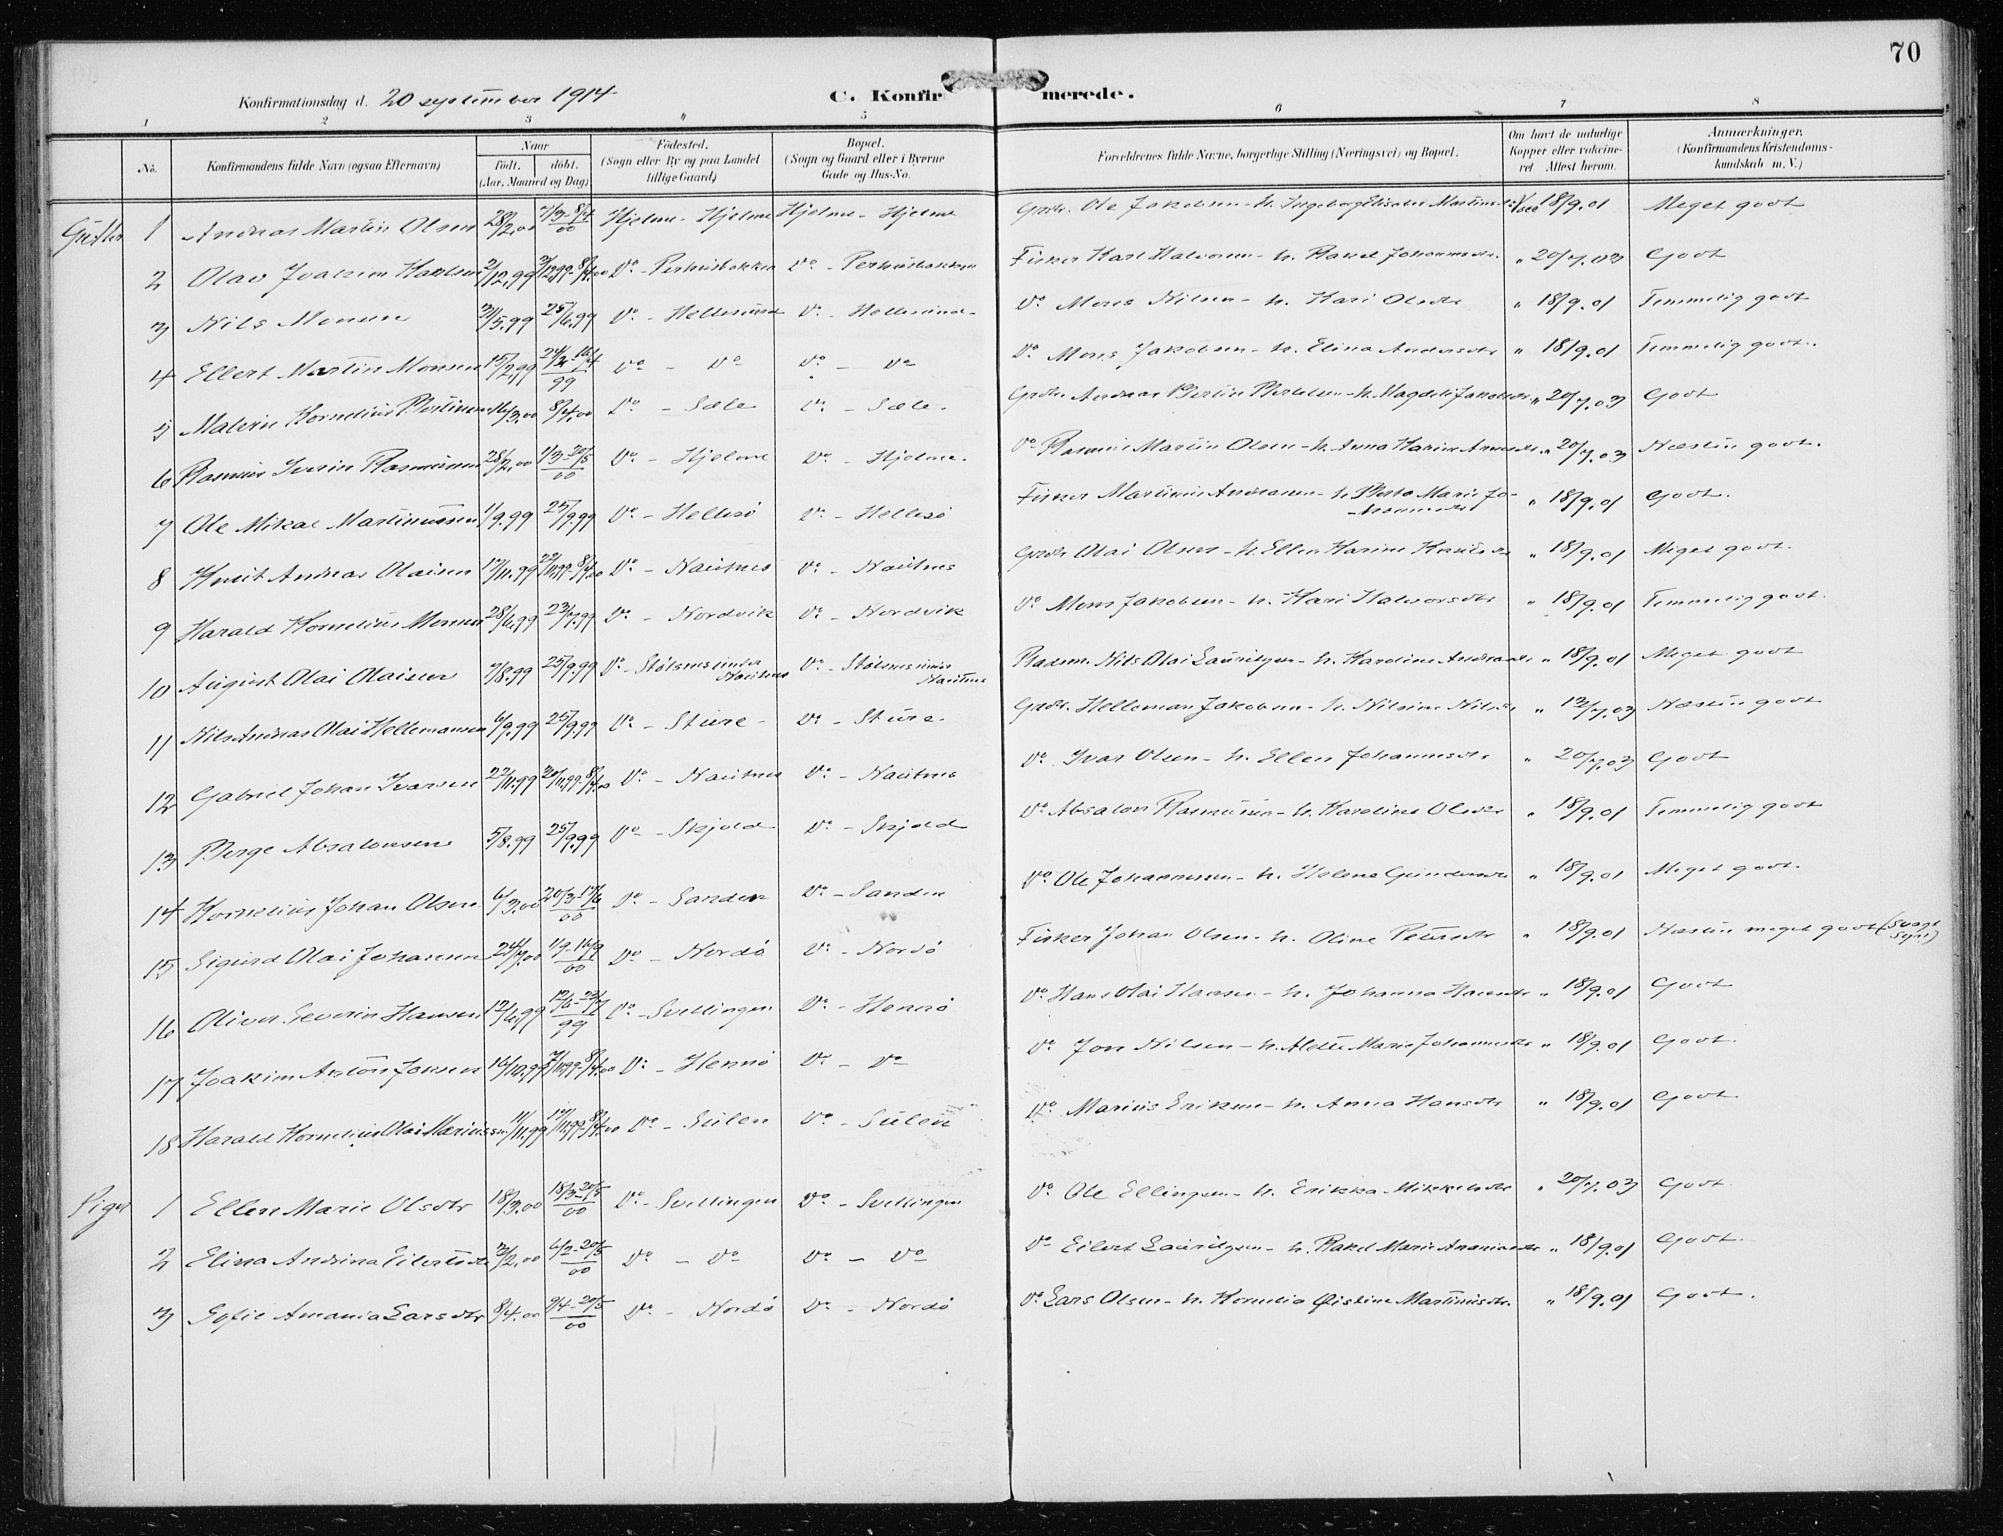 70
Konfirmationsdag d. 20 september 1914
C. Konfirmerede.
1 2 3 4 5 6 7 8
No. Konfirmandens fulde Navn (ogsaa Efternavn) Naar Født. døbt. (Aar, Maaned og Dag) Fødested. (Sogn eller By og paa Landet tillige Gaard) Bopæl. (Sogn og Gaard eller i Byerne Gade og Hus-No. Forældrenes fulde Navne, borgerlige Stilling (Næringsvei) og Bopæl. Om havt de naturlige Kopper eller vaccineret Attest herom. Anmærkninger. (Konfirmandens Kristendomskundskab m. V.)
Gutter 1 Andreas Martin Olsen 28/2.00 1/3-8/4 00 Hjelme - Hjelme Hjelme - Hjelme Grdbr. Ole Jakobsen - h. Ingeborg Elisabet 18/9.01 Meget godt
2 Olav Joakim Karlsen 2/12.99 8/4.00 Do - Do - Fisker Karl Halvorsen - h. Rakel Johannesdtr. " 20/7.03 Godt
3 Nils Monsen 31/5.99 25/6.99 Do - Hellesund Do - Hellesund Do Mons Nilsen - h. Kari Olsdtr " 18/9.01 Temmelig godt
4 Ellert Martin Monsen 15/2.99 99 Do - Do Do - Do Do Mons Jakobsen - h. Elina Andersdtr " 18/9.01 Temmelig godt.
5 Malvin Kornelius Bertinsen 16/3.00 8/4.00 Do - Sæle Do - Sæle. Grdbr. Andreas Bertin Bertelsen - h. Magdeli Jakobsdtr " 20/7.03 Godt
6 Rasmus Iversin Rasmussen 28/2.00 1/3-20/5 00 Do - Hjelme Do - Hjelme. Do Rasmus Martin Olsen - h. Anna Karine " 20/7.03 Næsten godt.
7 Ole Mikal Martinussen 1/9.99 25/9.99 Do - Hellesö Do - Hellesö Fisker Martinus Andreasen - h. Berta Marie Johannesdtr " 18/9.01 Godt.
8 Knut Andreas Olaisen 17/11.99 8/4.00 Do - Nautnes Do - Nautnes Grdbr Olai Olsen - h. Ellen Karine Knutsdtr " 18/9.01 Meget godt.
9 Harald Kornelius Monsen 28/6.99 23/7.99 Do - Nordvik Do - Nordvik Do Mons Jakobsen - h. Kari Halvorsdtr " 18/9.01 Temmelig godt.
10 August Olai Olaisen 7/8.99 25/9.99 Do - Stölsnes under Nautnes Do - Stölsnes under Nautnes Nils Olai Lauritzen - h. Karoline " 18/9.01 Meget godt
11 Nils Andreas Olai Hellemansen 6/9.99 25/9.99 Do - Sture Do - Sture. Grdbr. Helleman Jakobsen - h. Nilsine Nilsdtr " 12/7.03 Næsten godt
12 Gabriel Johan Ivarsen 22/11.99 8/4.00 Do - Nautnes Do - Nautnes Do Ivar Olsen - h. Ellen Johannesdtr " 20/7.03 Godt
13 Berge Absalonsen 5/8.99 25/9.99 Do - Skjold Do - Skjold Do Absalon Rasmussen - h. Karoline Olsdtr " 18/9.01 Temmelig godt
14 Kornelius Johan Olsen 6/3.00 20/3-17/6 00 Do - Sanden Do - Sanden Do Ole Johannesen - h. Helene " 18/9.01 Meget godt.
15 Sigurd Olai Johansen 24/7.00 1/9-16/9 00 Do - Nordö Do - Nordö Fisker Johan Olsen - h. Oline Petersdtr " 18/9.01 Næsten meget godt (svagt syn)
16 Oliver Severin Hansen 12/6.99 99 Do - Svellingen Do - Hernö Do Hans Olai Hansen - h. Johanna Hansdtr " 18/9.01 Godt
17 Joakim Anton Jonsen 16/10.99 8/4.00 Do - Hernö Do - Do Do Jon Nilsen - h. Marie Johannesdtr " 18/9.01 Godt.
18 Harald Kornelius Olai Mariussen 11/11.99 8/4.00 Do - Sulen Do - Sulen Do Marius Eriksen - h. Anna Hansdtr " 18/9.01 Godt.
Piger 1 Ellen Marie Olsdtr 18/3.00 18/3-20/5 00 Do - Svellingen Do - Svellingen Do Ole Ellingsen - h. Erikka Mikkelsdtr " 20/7.03 Godt.
2 Elina Andrina Eilertsdtr 3/2.00 6/2-20/5 00 Do - Do Do - Do Do Eilert Lauritzen - h. Rakel Marie " 18/9.01 Godt.
3 Sofie Amania Larsdtr 8/4.00 9/4-20/5 00 Do - Nordö Do - Nordö Do Lars Olsen - h. Kornelia Martinusdtr. " 18/9.01 Godt.